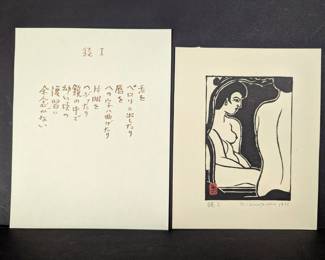 鏡 I
舌を
ペロリと出したり
唇を
への字に曲げたり
片眼を
つぶったり
鏡の中で
幼い
余念がない
鏡 I